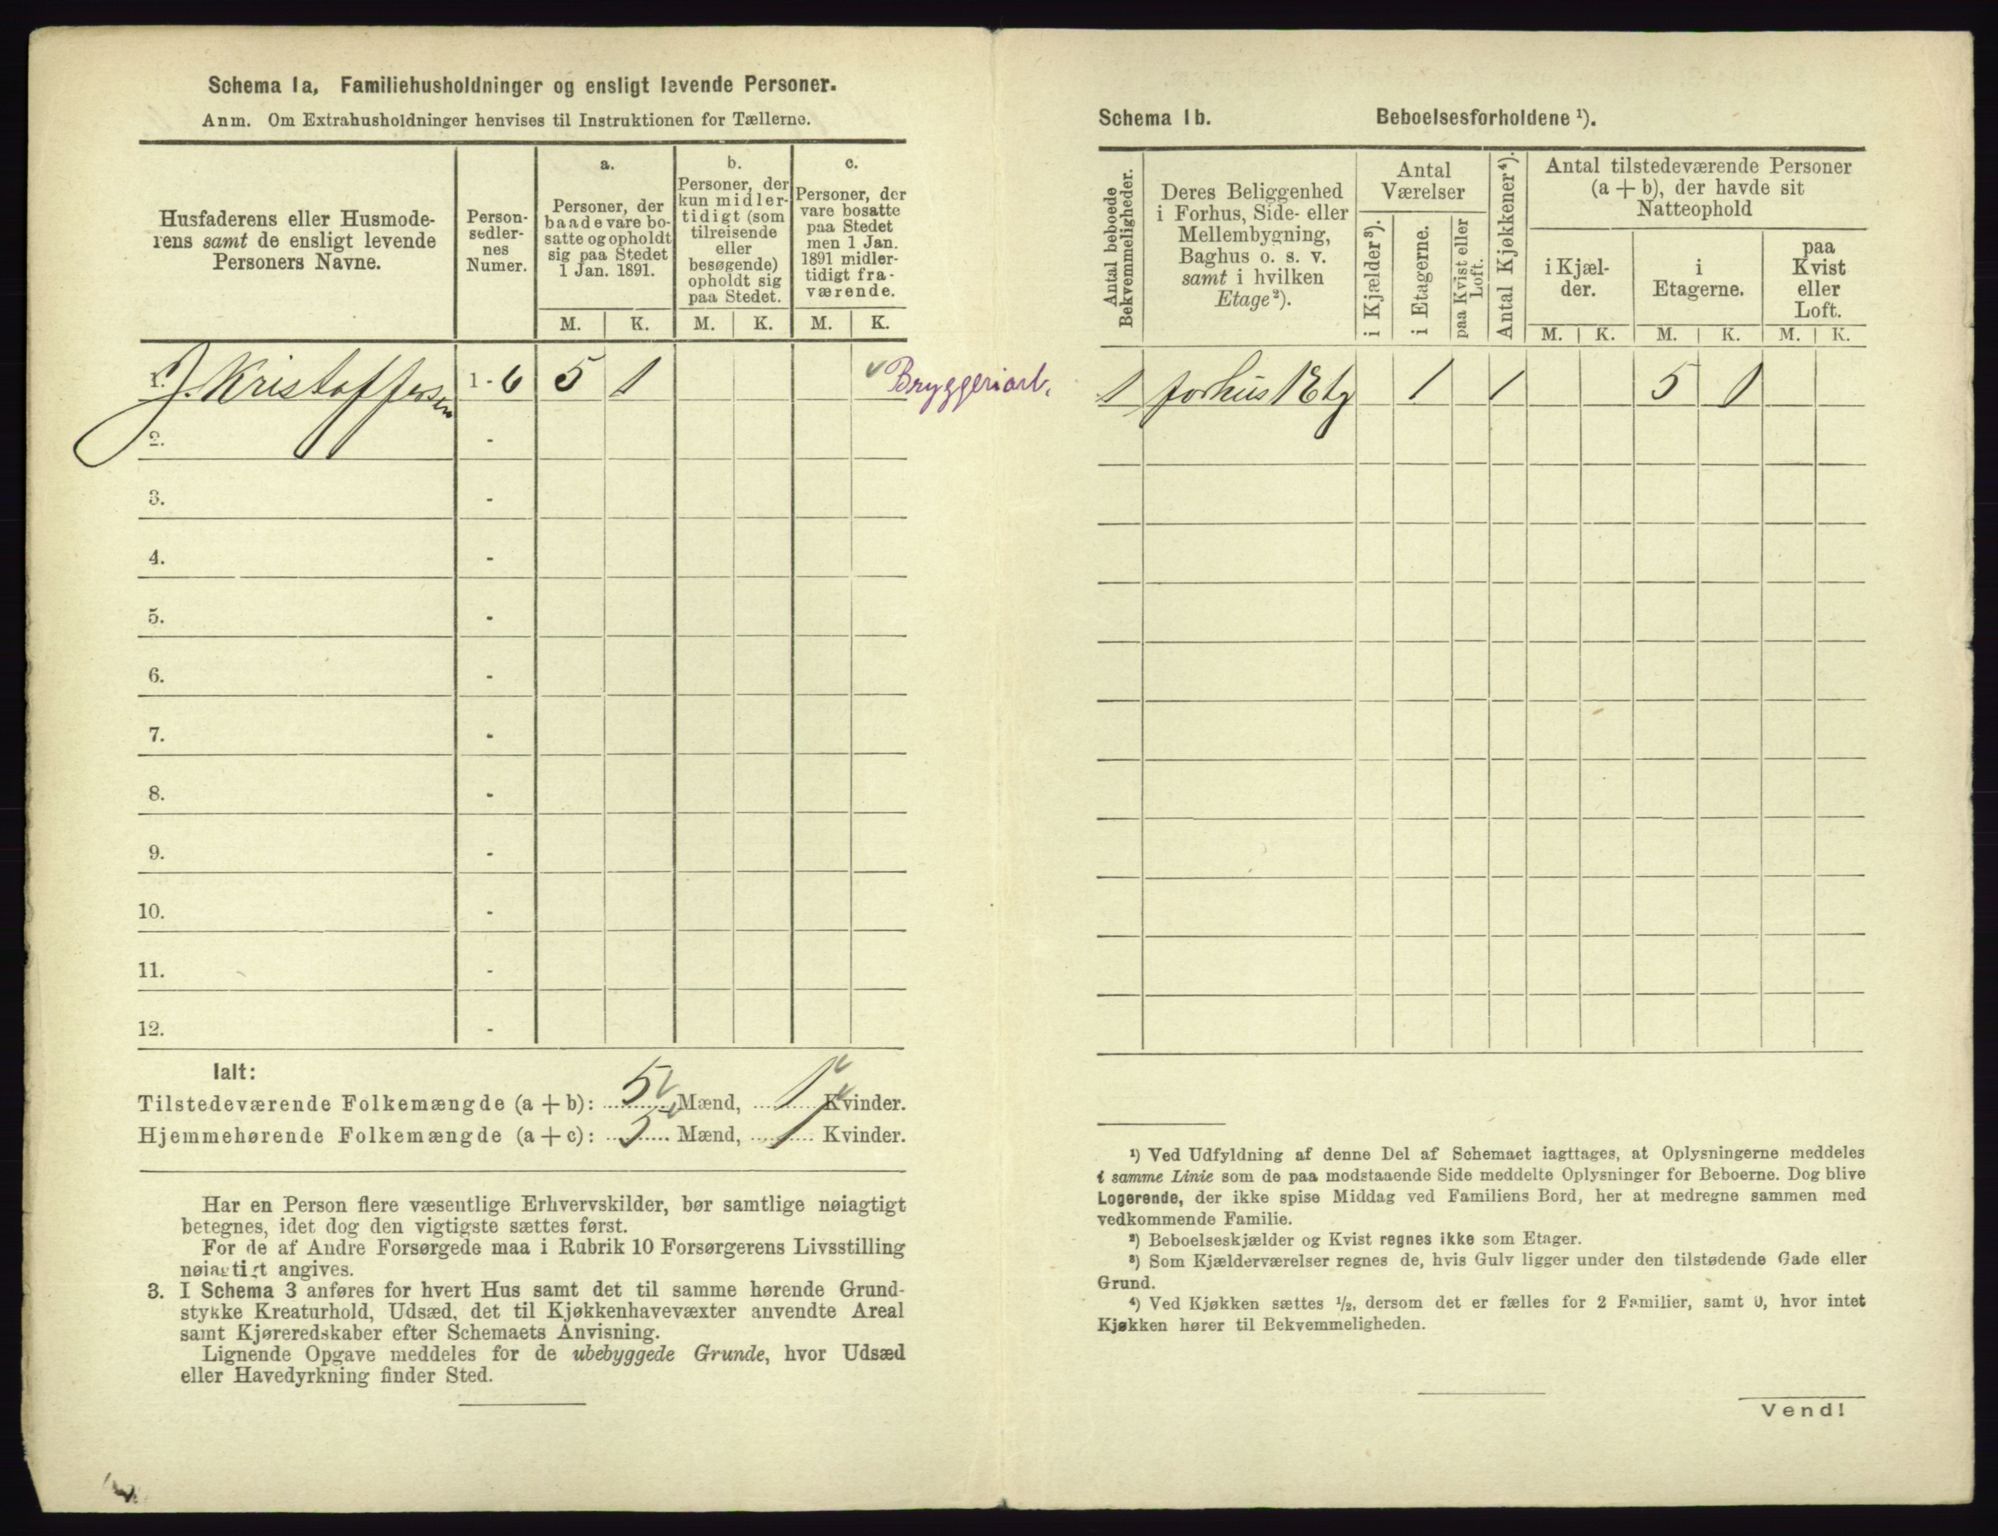 Schema 1a, Familiehusholdninger og ensligt levende Personer.
Anm. Om Extrahusholdninger henvises til Instruktionen for Tællerne.
Husfaderens eller Husmode-
rens samt de ensligt levende
Personers Navne.
Person-
sedler-
nes
Numer.
a.
Personer, der
baade vare bo-
satte og opholdt
sig paa Stedet
1 Jan. 1891.
b.
Personer, der
kun midler-
tidigt (som
tilreisende
eller
besøgende)
opholdt sig
paa Stedet.
c.
Personer, der
vare bosatte
paa Stedet
men 1 Jan.
1891 midler-
tidigt fra-
værende.
M. K. M. K. M. K.
1. J. Kristoffersen 1 - 6 5 1 Bryggeriarb.
2. -
3. -
4. -
5. -
6. -
7. -
8. -
9. -
10. -
11. -
12. -
Ialt:
Tilstedeværende Folkemængde (a + b): 5 Mænd, 1 Kvinder.
Hjemmehørende Folkemængde (a + c): 5 Mænd, 1 Kvinder.
Har en Person flere væsentlige Erhvervskilder, bør samtlige nøiagtigt
betegnes, idet dog den vigtigste sættes først.
For de af Andre Forsørgede maa i Rubrik 10 Forsørgerens Livsstilling
nøiagtigt angives.
3. I Schema 3 anføres for hvert Hus samt det til samme hørende Grund-
stykke Kreaturhold, Udsæd, det til Kjøkkenhavevæxter anvendte Areal
samt Kjøreredskaber efter Schemaets Anvisning.
Lignende Opgave meddeles for de ubebyggede Grunde, hvor Udsæd
eller Havedyrkning finder Sted.
Schema 1b. Beboelsesforholdene ¹).
Antal beboede
Bekvemmeligheder.
Deres Beliggenhed
i Forhus, Side- eller
Mellembygning,
Baghus o. s. v.
samt i hvilken
Etage ²).
Antal
Værelser
i Kjælder ³).
i Etagerne.
paa Kvist eller
Loft.
Antal Kjøkkener ⁴).
Antal tilstedeværende Personer
(a + b), der havde sit
Natteophold
i Kjæl-
der.
i
Etagerne.
paa
Kvist
eller
Loft.
M. K. M. K. M. K.
1 forhus 1 Etg 1 1 5 1
¹) Ved Udfyldning af denne Del af Schemaet iagttages, at Oplysningerne meddeles
i samme Linie som de paa modstaaende Side meddelte Oplysninger for Beboerne. Dog blive
Logerende, der ikke spise Middag ved Familiens Bord, her at medregne sammen med
vedkommende Familie.
²) Beboelseskjælder og Kvist regnes ikke som Etager.
³) Som Kjælderværelser regnes de, hvis Gulv ligger under den tilstødende Gade eller
Grund.
⁴) Ved Kjøkken sættes ½, dersom det er fælles for 2 Familier, samt 0, hvor intet
Kjøkken hører til Bekvemmeligheden.
Vend!